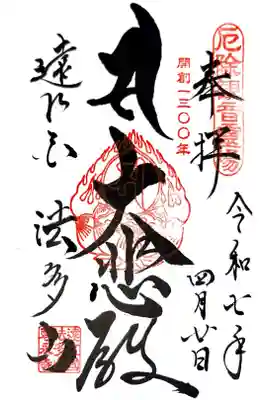 厄除観音霊場
奉拝
開創一三〇〇年
令和七年
四月廿日
大悲殿
遠
法多山